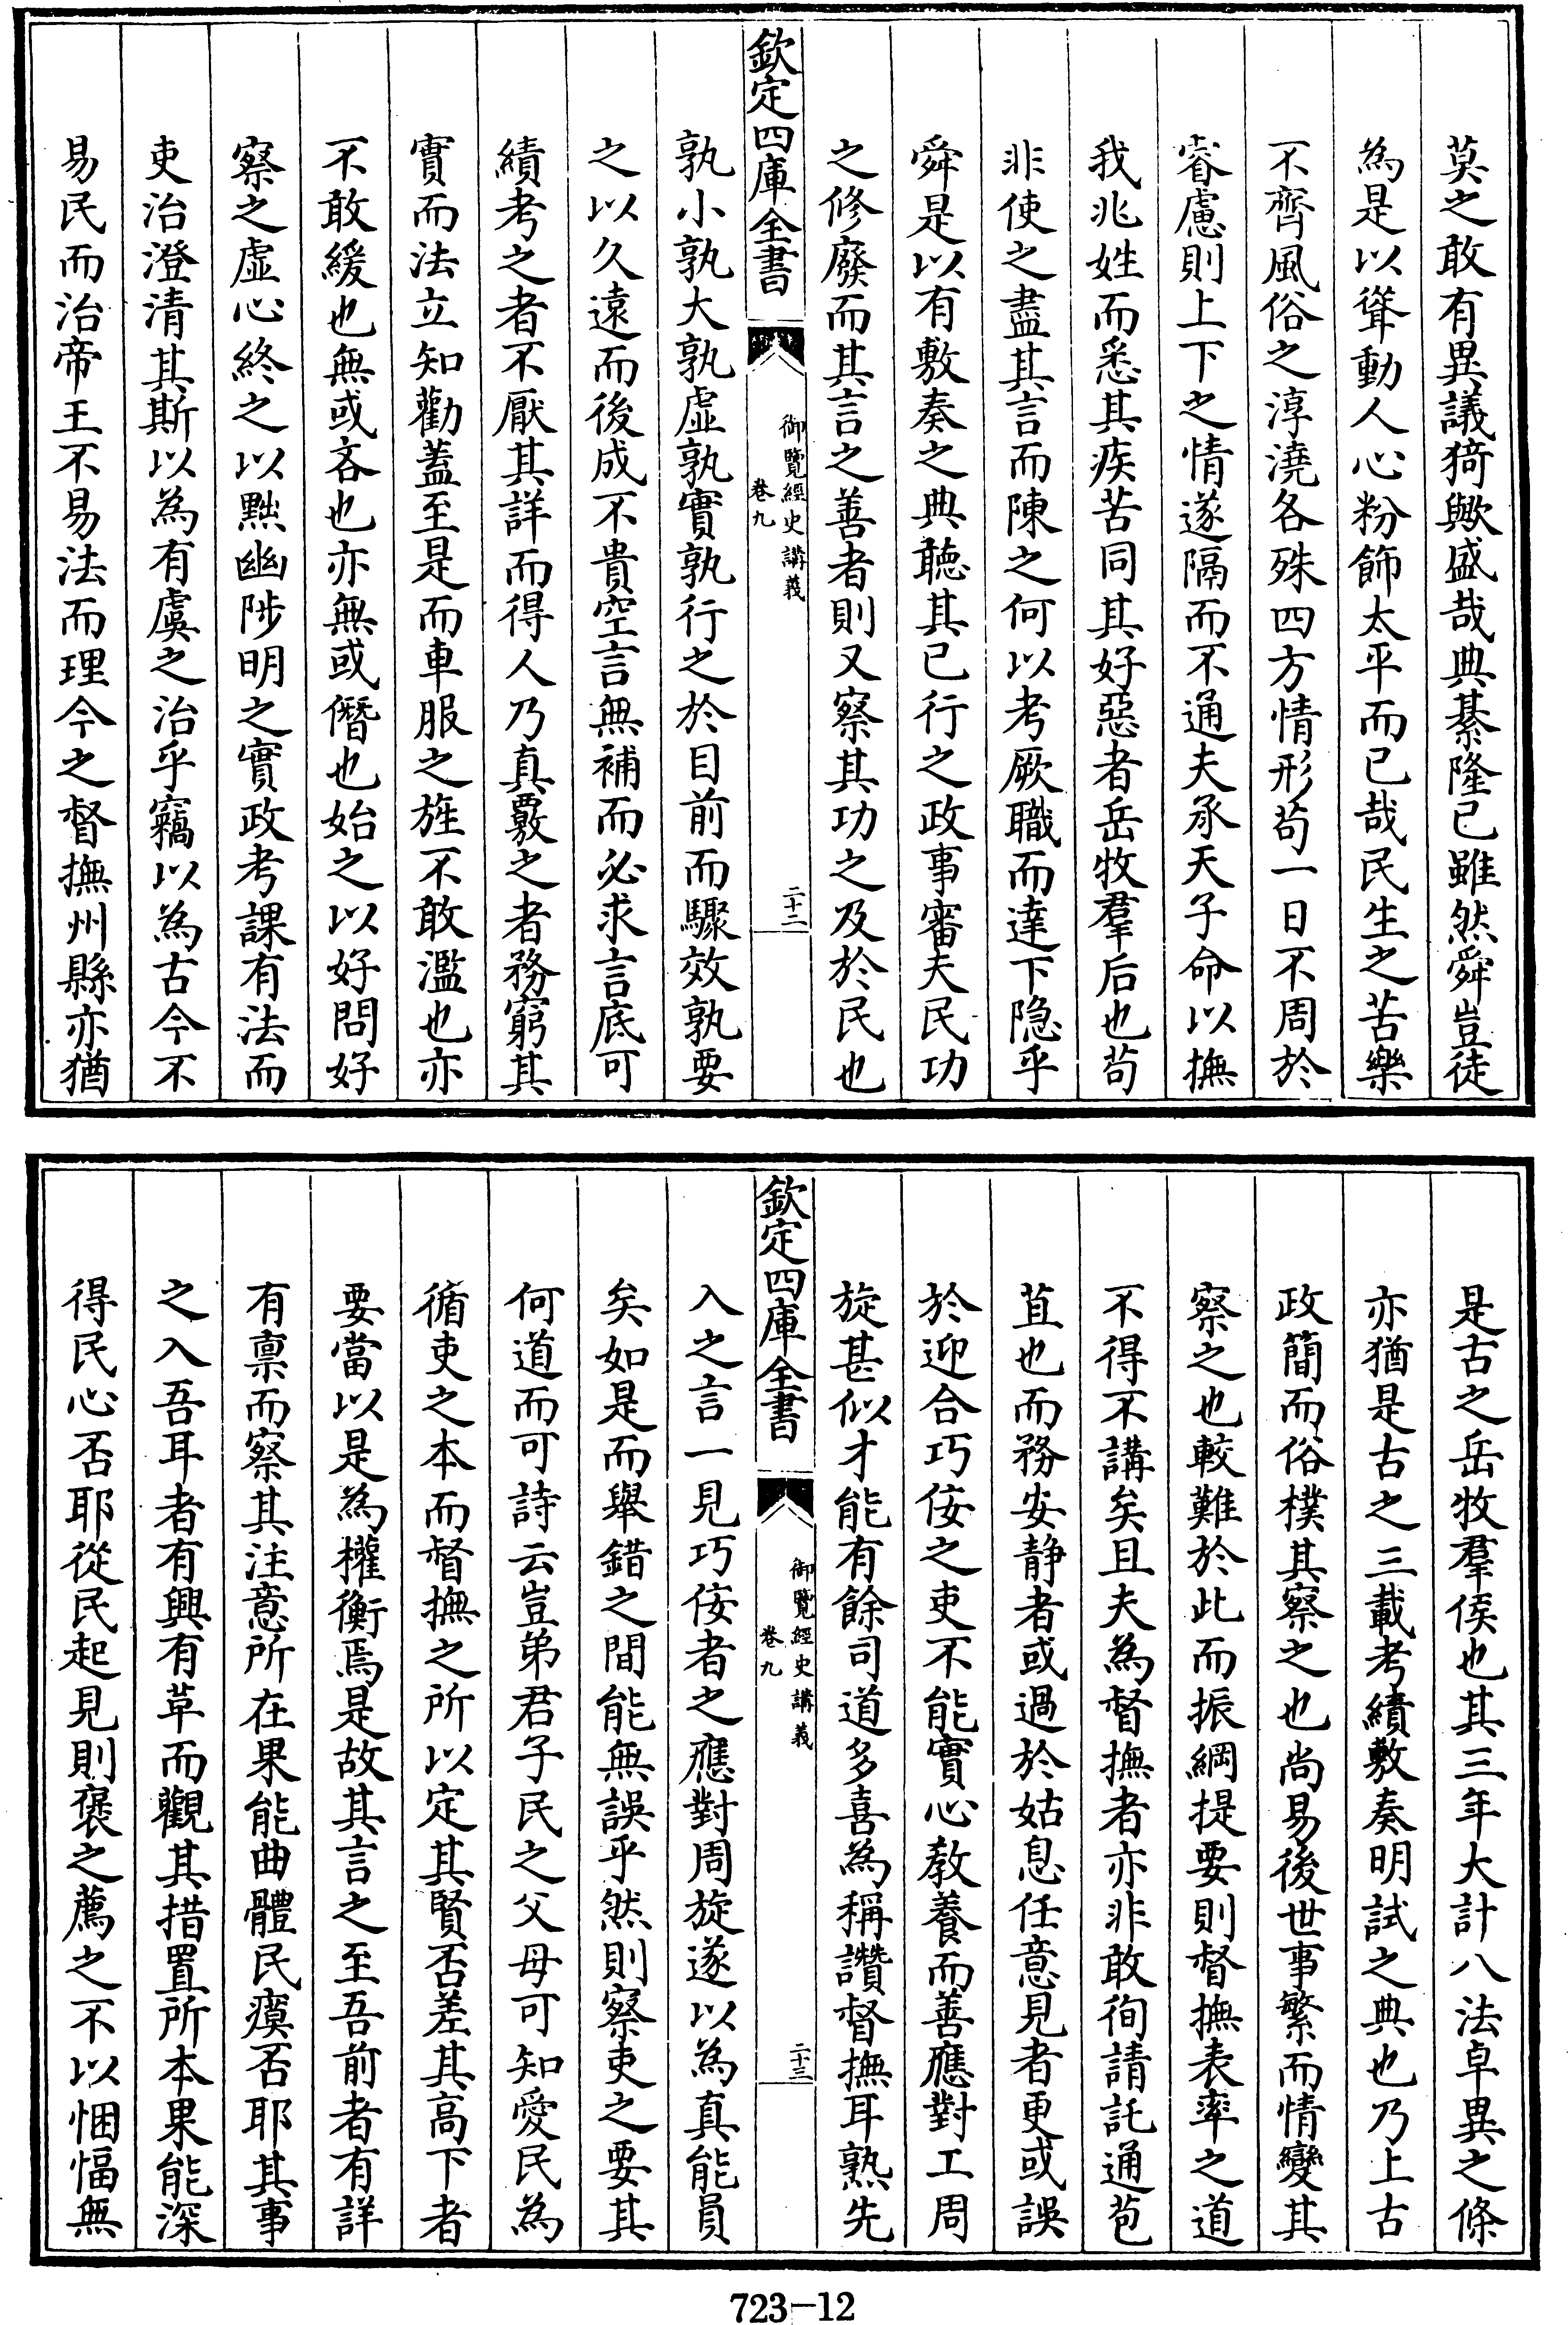 莫之敢有異議猗歟盛哉典綦隆已雖然舜豈徒
為是以聳動人心粉飾太平而已哉民生之苦樂
不齊風俗之淳澆各殊四方情形苟一日不周於
睿慮則上下之情遂隔而不通夫承天子命以撫
我兆姓而悉其疾苦同其好惡者岳牧羣后也苟
非使之盡其言而陳之何以考厥職而達下隐乎
舜是以有敷奏之典聽其已行之政事審夫民功
之修廢而其言之善者則又察其功之及於民也
欽定四庫全書
御覽經史講義
卷九
二十二
孰小孰大孰虛孰實孰行之於目前而驟效孰要
之以久遠而後成不貴空言無補而必求言底可
績考之者不厭其詳而得人乃真覈之者務窮其
實而法立知勸蓋至是而車服之旌不敢濫也亦
不敢緩也無或吝也亦無或僭也始之以好問好
察之虛心終之以黜幽陟明之實政考課有法而
吏治澄清其斯以為有虞之治乎竊以為古今不
易民而治帝王不易法而理今之督撫州縣亦猶
是古之岳牧羣侯也其三年大計八法卓異之條
亦猶是古之三載考績敷奏明試之典也乃上古
政簡而俗樸其察之也尚易後世事繁而情變其
察之也較難於此而振綱提要則督撫表率之道
不得不講矣且夫為督撫者亦非敢徇請託通苞
苴也而務安静者或過於姑息任意見者更或誤
於迎合巧佞之吏不能實心教養而善應對工周
旋甚似才能有餘司道多喜為稱讚督撫耳熟先
欽定四庫全書
御覽經史講義
卷九
二十三
入之言一見巧佞者之應對周旋遂以為真能員
矣如是而舉錯之間能無誤乎然則察吏之要其
何道而可詩云豈弟君子民之父母可知愛民為
循吏之本而督撫之所以定其賢否差其高下者
要當以是為權衡焉是故其言之至吾前者有詳
有禀而察其注意所在果能曲體民瘼否耶其事
之入吾耳者有興有革而觀其措置所本果能深
得民心否耶從民起見則褒之薦之不以悃愊無
723-12